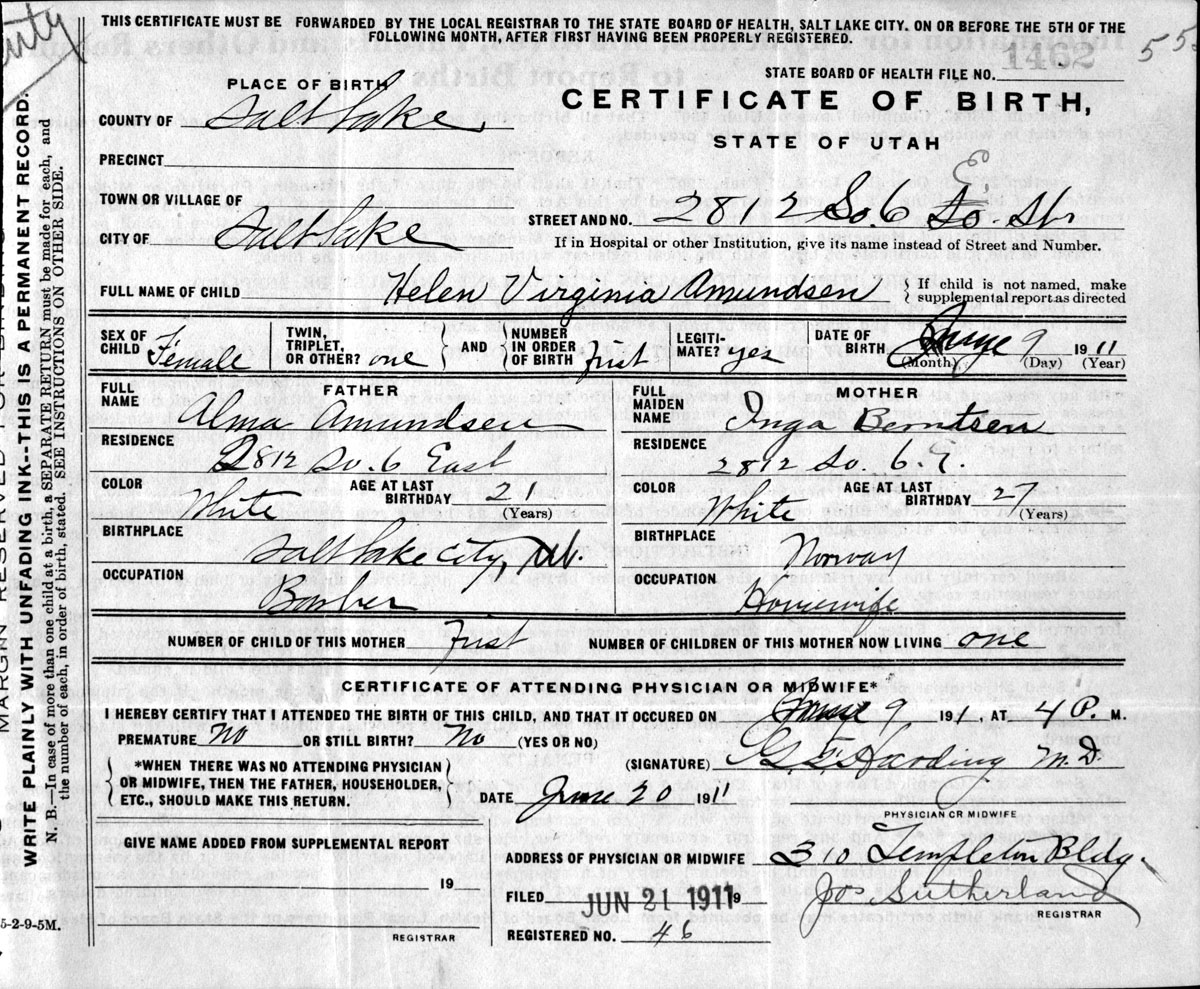 THIS CERTIFICATE MUST BE FORWARDED BY THE LOCAL REGISTRAR TO THE STATE BOARD OF HEALTH, SALT LAKE CITY. ON OR BEFORE THE 5TH OF THE
FOLLOWING MONTH, AFTER FIRST HAVING BEEN PROPERLY REGISTERED.
55
STATE BOARD OF HEALTH FILE NO.
PLACE OF BIRTH
CERTIFICATE OF BIRTH,
COUNTY OF Salt Lake
STATE OF UTAH
PRECINCT
TOWN OR VILLAGE OF
E
STREET AND NO. 2812 So. 6 So. Str
CITY OF Salt Lake
If in Hospital or other Institution, give its name instead of Street and Number.
FULL NAME OF CHILD Helen Virginia Amundsen { If child is not named, make
supplemental report as directed
SEX OF CHILD Female TWIN, TRIPLET, OR OTHER? one } AND { NUMBER IN ORDER OF BIRTH first LEGITI- MATE? yes DATE OF BIRTH June 9 1911
(Month) (Day) (Year)
FATHER
FULL NAME Alma Amundsen
RESIDENCE
2812 So. 6 East
COLOR White AGE AT LAST BIRTHDAY 21
(Years)
BIRTHPLACE
Salt Lake City, Ut.
OCCUPATION
Barber
MOTHER
FULL MAIDEN NAME Inga Berntsen
RESIDENCE
2812 So. 6. E.
COLOR White AGE AT LAST BIRTHDAY 27
(Years)
BIRTHPLACE
Norway
OCCUPATION
Housewife
NUMBER OF CHILD OF THIS MOTHER First NUMBER OF CHILDREN OF THIS MOTHER NOW LIVING one
CERTIFICATE OF ATTENDING PHYSICIAN OR MIDWIFE*
I HEREBY CERTIFY THAT I ATTENDED THE BIRTH OF THIS CHILD, AND THAT IT OCCURED ON June 9, 191 , AT 4 P. M.
PREMATURE No OR STILL BIRTH? No (YES OR NO)
(SIGNATURE) G. F. Harding M.D.
{ *WHEN THERE WAS NO ATTENDING PHYSICIAN
OR MIDWIFE, THEN THE FATHER, HOUSEHOLDER,
ETC., SHOULD MAKE THIS RETURN. }
DATE June 20 1911
PHYSICIAN OR MIDWIFE
GIVE NAME ADDED FROM SUPPLEMENTAL REPORT
19
REGISTRAR
ADDRESS OF PHYSICIAN OR MIDWIFE 310 Templeton Bldg.
FILED JUN 21 1911 19
Jos Sutherland
REGISTRAR
REGISTERED NO. 46
WRITE PLAINLY WITH UNFADING INK--THIS IS A PERMANENT RECORD.
N. B.—In case of more than one child at a birth, a SEPARATE RETURN must be made for each, and
the number of each, in order of birth, stated. SEE INSTRUCTIONS ON OTHER SIDE.
5-2-9-5M.